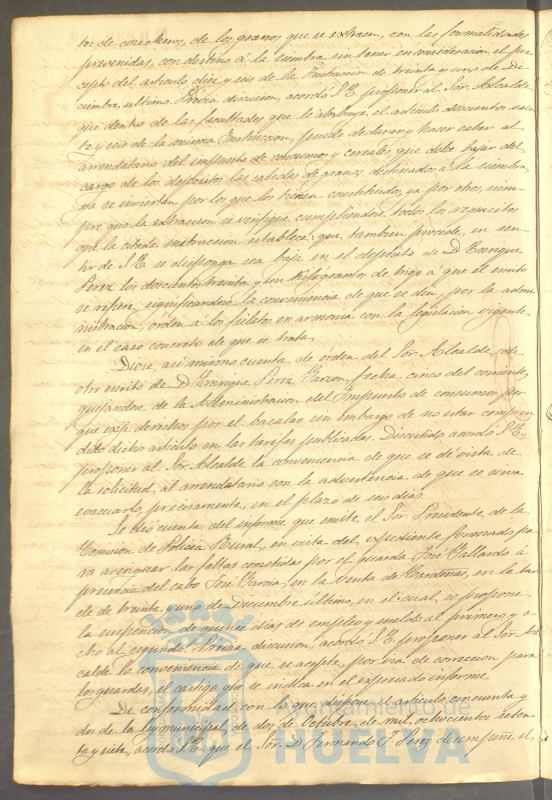 tos de cosecheros, de los granos que se extraen, con las formalidades
prevenidas, con destino á la siembra, sin tener en consideración el pre-
cepto del artículo diez y seis de la Instrucción de treinta y uno de Di-
ciembre último. Prévia discusión, acordó S. E. proponer al Sor. Alcalde
que dentro de las facultades que le atribuye el artículo doscientos vein-
te y seis de la misma Instrucción, puede declarar y hacer saber al
arrendatario del impuesto de consumos y cereales, que debe bajar del
cargo de los depósitos las salidas de granos destinados a la siembra,
ya se inviertan por los que los tienen constituidos, ya por otros, siem-
pre que la extracción se verifique cumpliéndose todos los requisitos
que la citada instrucción establece; que tambien procede, en sen-
tir de S. E. se disponga sea baja en el depósito de D. Enrique
Perez los doscientos treinta y un kilogramos de trigo á que el escrito
se refiere, significándose la conveniencia de que se den, por la admi-
nistración, órden á los fielatos en armonía con la legislación vigente,
en el caso concreto de que se trata.
Dióse, asi mismo cuenta de órden del Sor. Alcalde, de
otro escrito de D. Enrique Perez Garzon, fecha cinco del corriente,
quejándose de la Administración del Impuesto de consumos por-
que exije derechos por el bacalao sin embargo de no estar compren-
dido dicho artículo en las tarifas publicadas. Discutido, acordó S. E.
proponer al Sor. Alcalde la conveniencia de que se dé vista de
la solicitud, al arrendatario con la advertencia de que se sirva
evacuarlo, precisamente, en el plazo de seis días.
Se dió cuenta del informe que emite, el Sor. Presidente, de la
Comisión de Policia Rural, en vista del expediente formado pa-
ra averiguar las faltas cometidas por el guarda José Gallardo á
presencia del cabo José Garcia, en la Venta de Cardeñas, en la tar-
de de treinta y uno de Diciembre último, en el cual, se propone
la suspensión de quince días de empleo y sueldo al primero y o-
cho al segundo. Prévia discusión, acordó S. E. proponer al Sor. Al-
calde la conveniencia de que se acepte, por vía de corrección para
los guardas, el castigo que se indica en el expresado informe.
De conformidad con lo que dispone el artículo cincuenta y
dos de la ley municipal, de dos de Octubre, de mil ochocientos seten-
ta y siete, acordó S. E. que el Sor. D. Fernando J. Perez desempeñe el
Ayuntamiento de
HUELVA